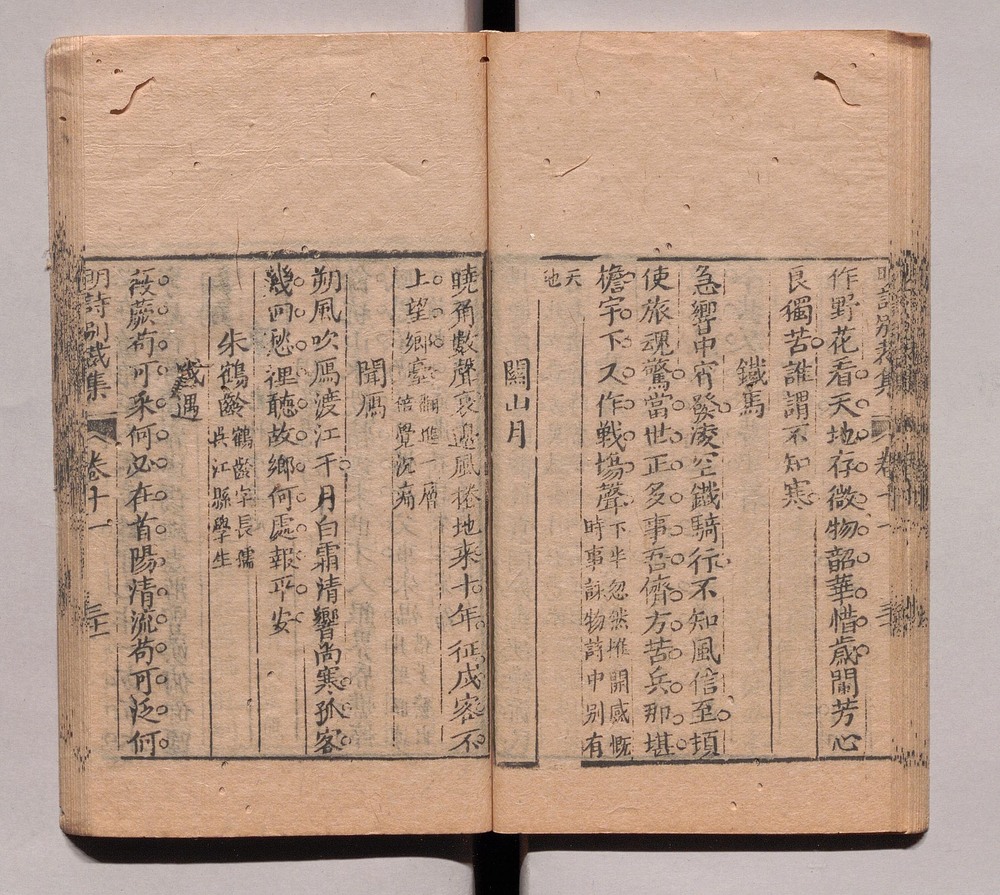 作野花看天地存微物韶華惜歲闌芳心
良獨苦誰謂不知寒
鐵馬
急響中宵發凌空鐵騎行不知風信至頓
使旅魂驚當世正多事吾儕方苦兵那堪
檐宇下又作戰場聲
下半忽然推開感慨
時事詠物詩中別有
天
地
關山月
曉角數聲哀邊風捲地来十年征戍客不
上望鄉臺
翻進一層
倍覺沈痛
聞鴈
朔風吹鴈渡江干月白霜清響尚寒孤客
幾回愁裡聽故鄉何處報平安
朱鶴齡
鶴齡字長孺
吳江縣學生
感遇
薇蕨苟可采何必在首陽清流苟可泛何
明詩別裁集 卷十一